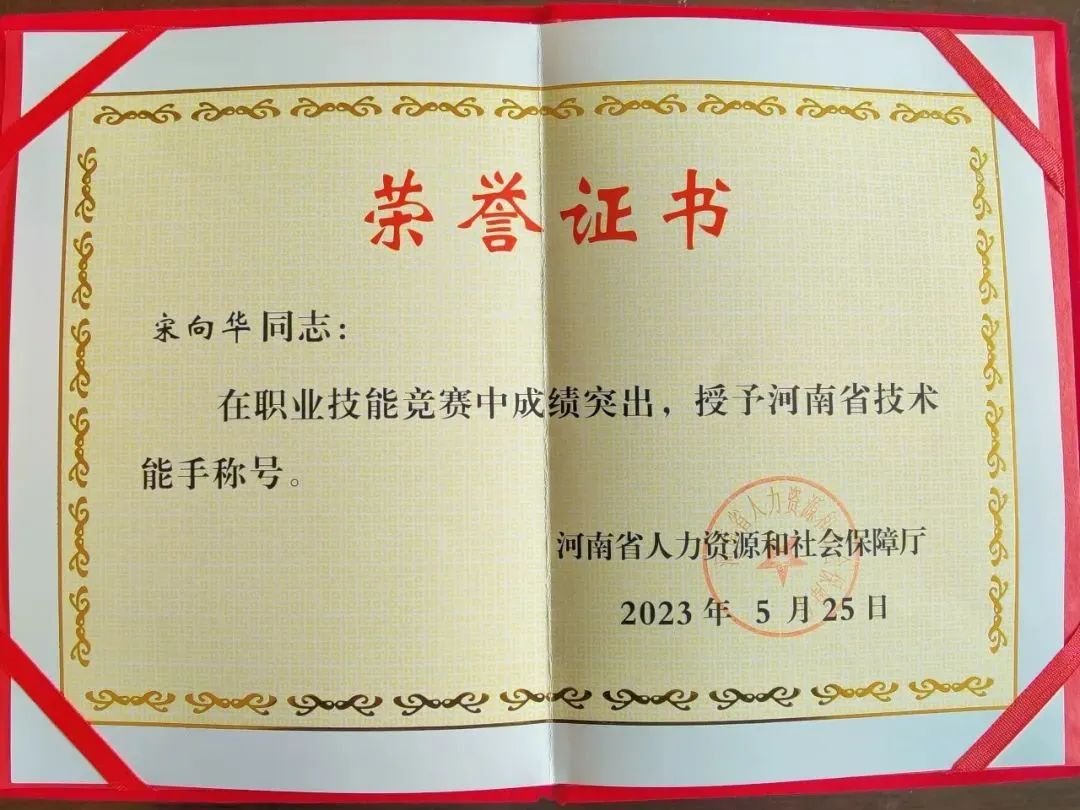 荣誉证书
宋向华同志：
在职业技能竞赛中成绩突出，授予河南省技术
能手称号。
河南省人力资源和社会保障厅
2023年 5月25日